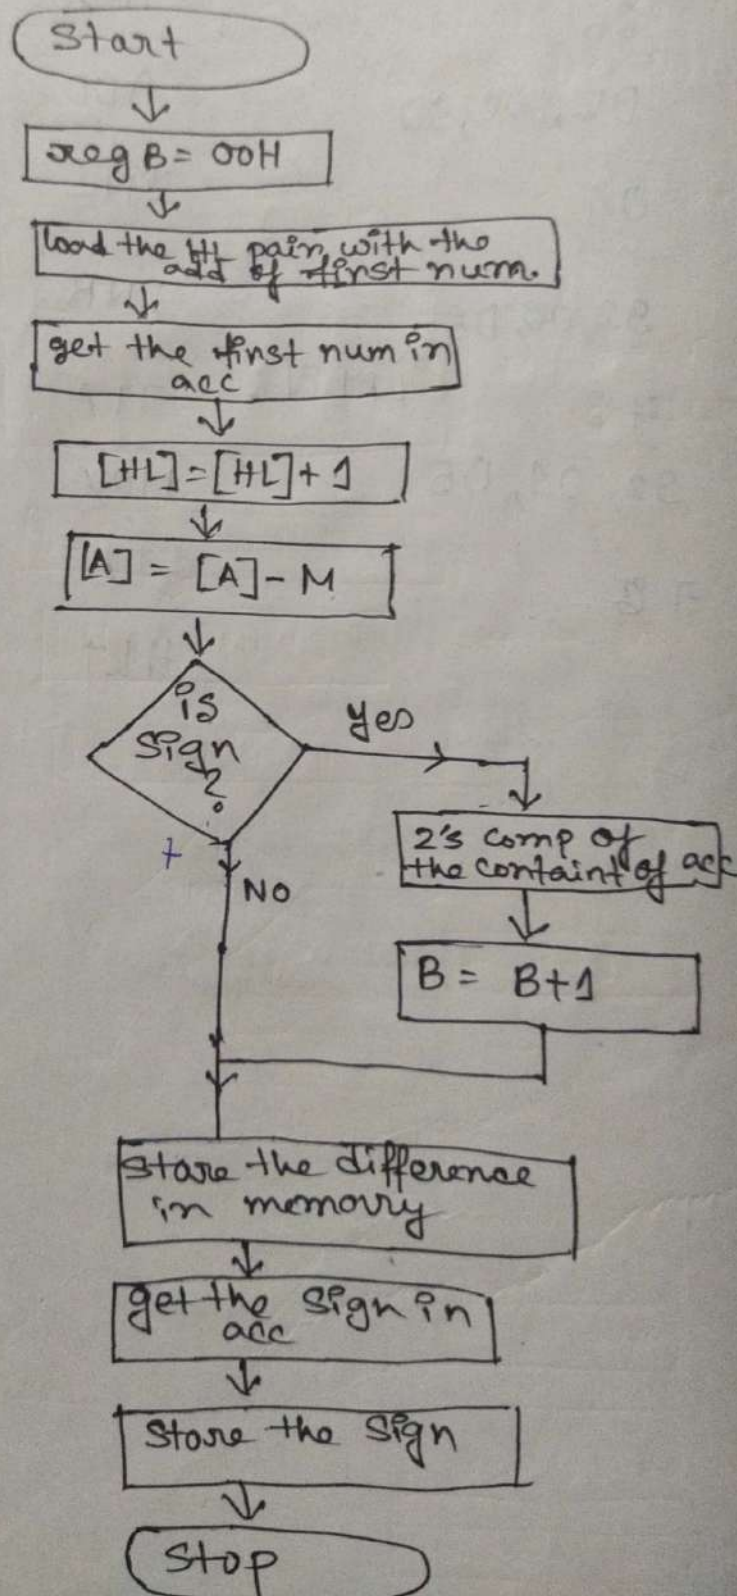 Start
reg B = 00H
load the HL pair with the
add of first num.
get the first num in
acc
[HL] = [HL] + 1
[A] = [A] - M
is
sign
?
Yes
+
No
2's comp of
the containt of acc
B = B+1
Store the difference
in memorry
get the sign in
acc
Store the sign
Stop